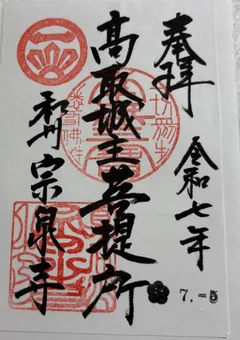 奉拝
令和七年
7.-5
高取城主菩提所
和州 宗泉寺